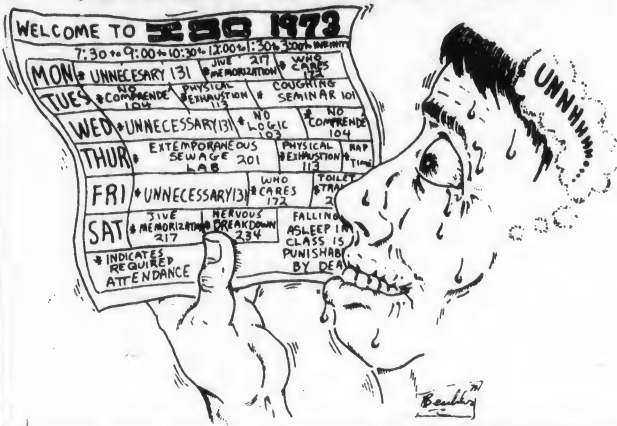 WELCOME TO 1973
7:30 to 9:00 to 10:30 to 12:00 to 1:30 to 3:00 to INFINITY
MON * UNNECESARY 131 JIVE 217 * MEMORIZATION * WHO CARES 172
TUES * NO COMPRENDE 104 PHYSICAL * EXHAUSTION * COUGHING SEMINAR 101
WED * UNNECESSARY 131 * NO LOGIC 103 * NO COMPRENDE 104
THUR * EXTEMPORANEOUS SEWAGE 201 LAB PHYSICAL * EXHAUSTION 113 NAP * TIME
FRI * UNNECESSARY 131 WHO * CARES 172 TOILET * TRA 2
SAT JIVE * MEMORIZATION 217 NERVOUS * BREAKDOWN 234
FALLING ASLEEP IN CLASS IS PUNISHAB BY DEA
* INDICATES REQUIRED ATTENDANCE
UNNHHHH...